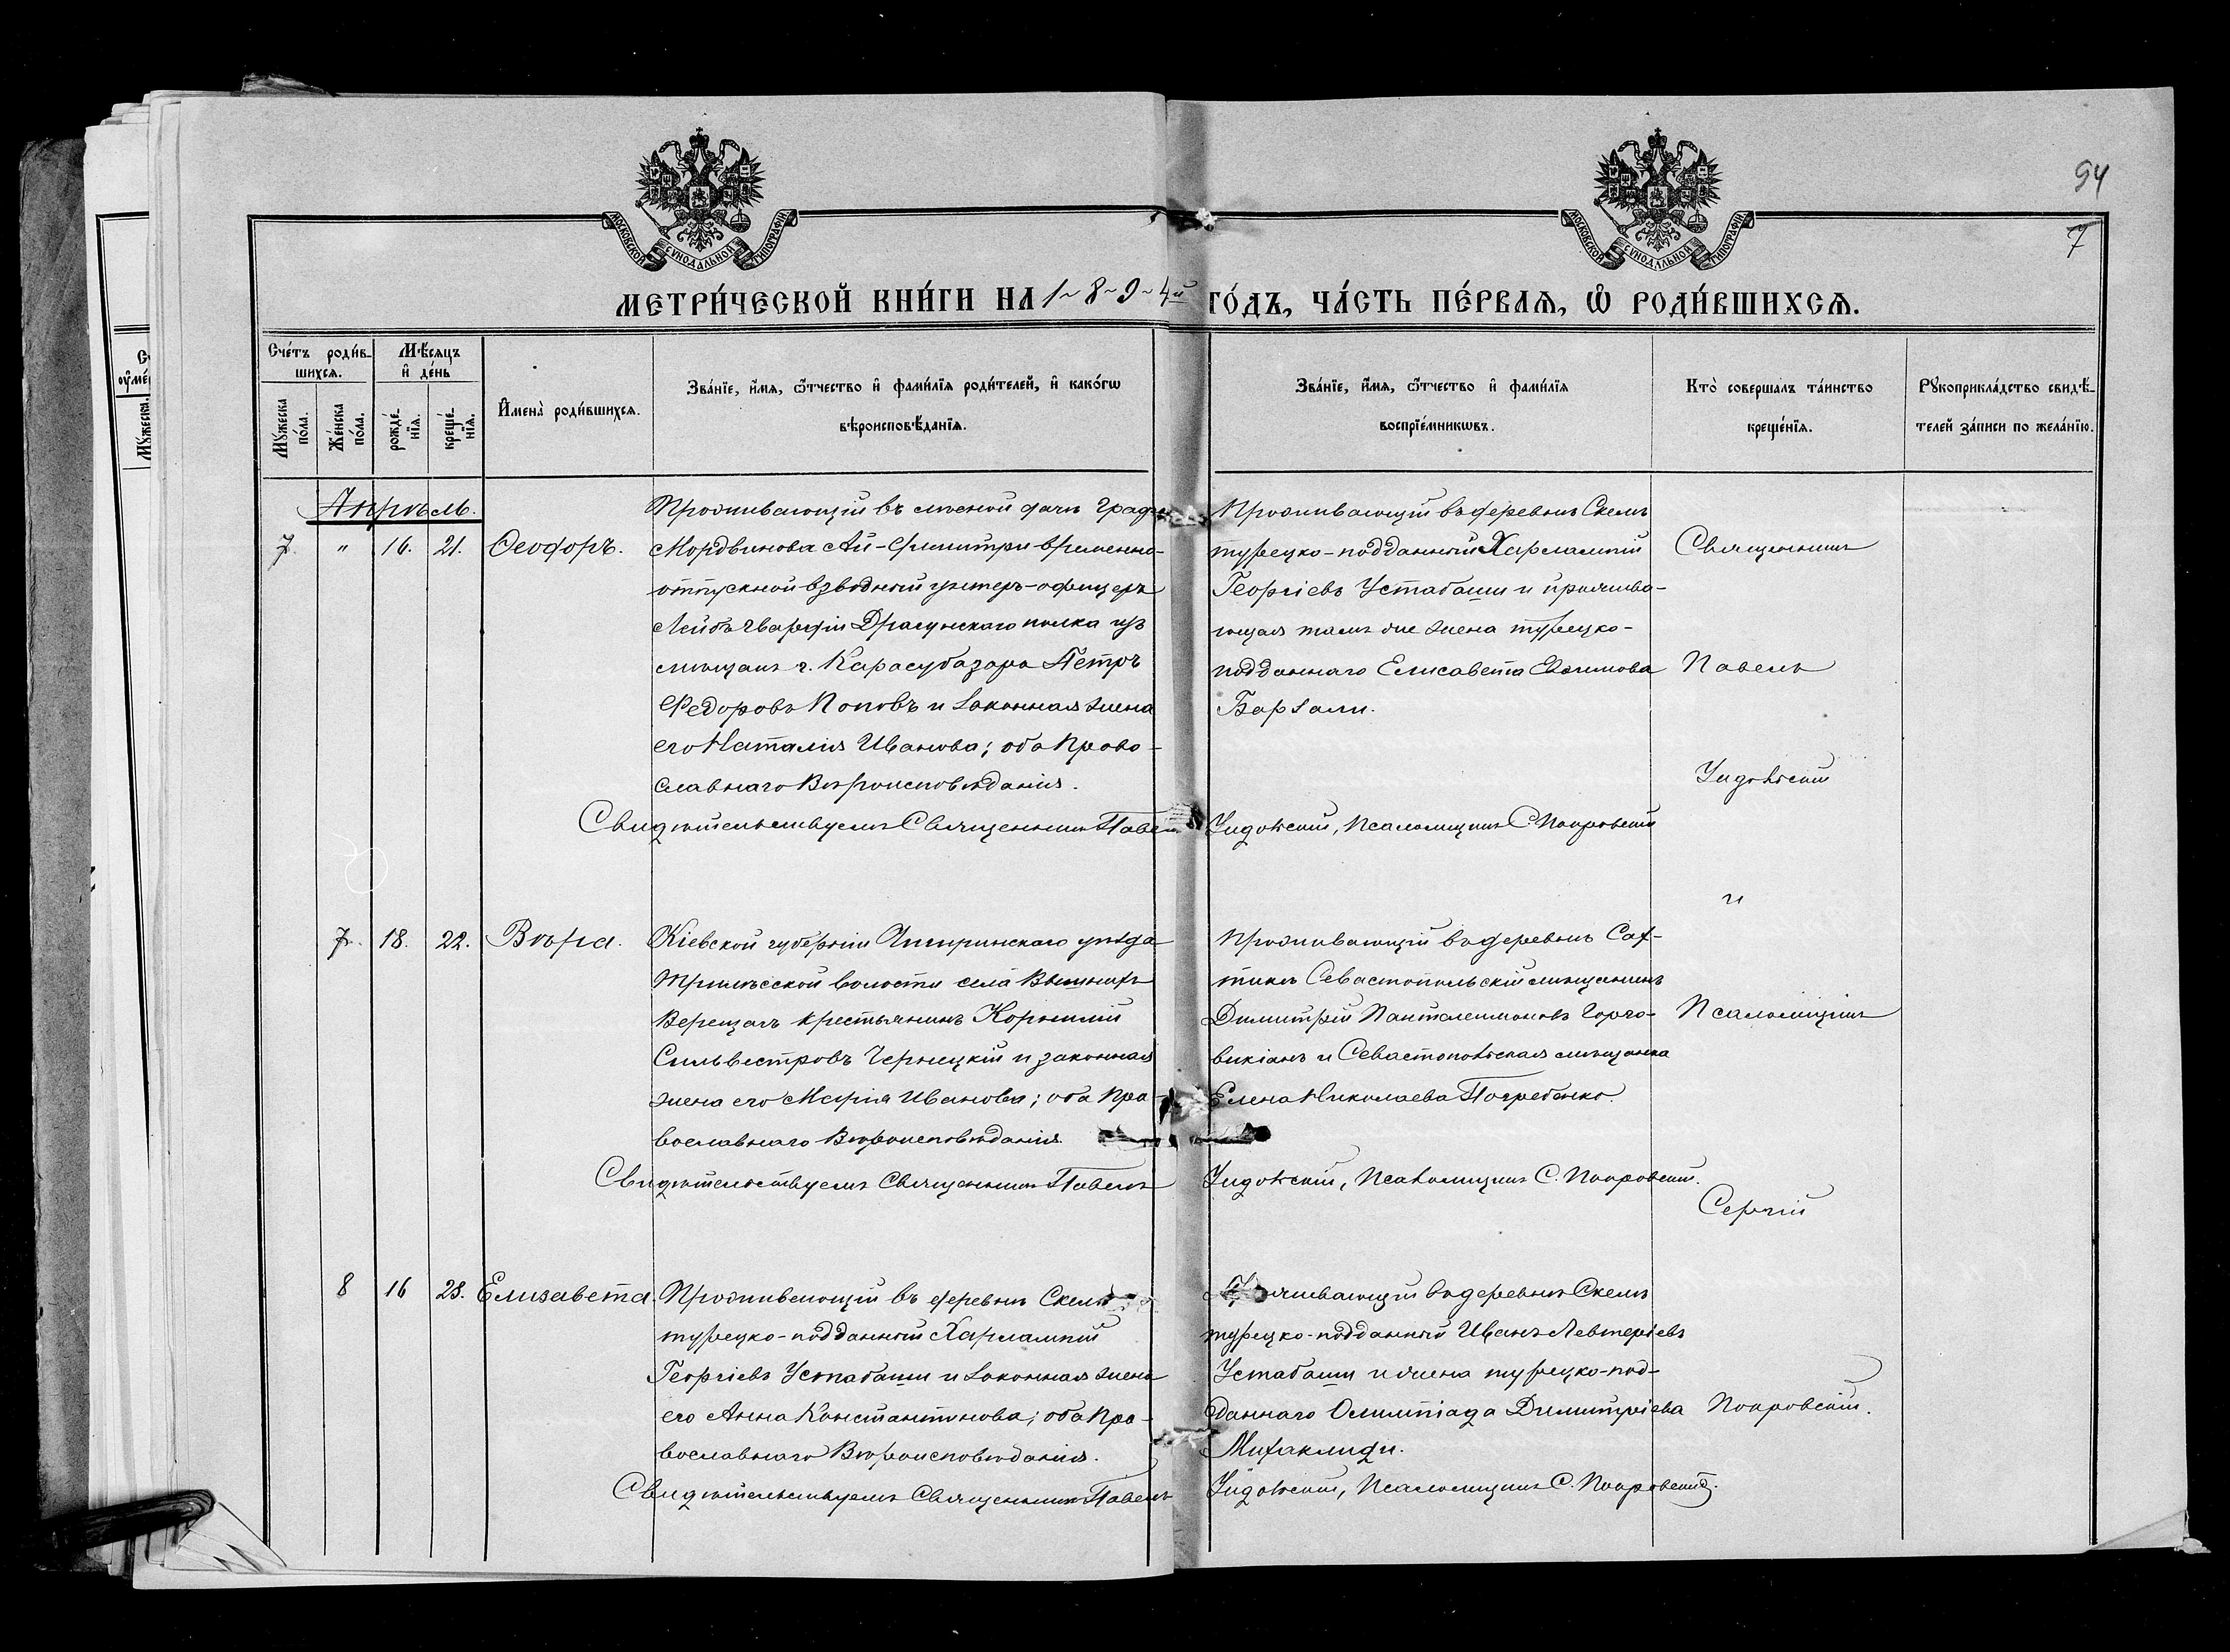 94
7
МОСКОВСКОЙ СѴНОДАЛЬНОЙ ТИПОГРАФІИ
МОСКОВСКОЙ СѴНОДАЛЬНОЙ ТИПОГРАФІИ
МЕТРИ́ЧЕСКОЙ КНИ́ГИ НА 1~8~9~4й ГО́ДЪ, ЧА́СТЬ ПЕ́РВАѦ, Ѡ҆ РОДИ́ВШИХСѦ.
Сче́тъ роди́в-
шихсѧ.
Мꙋжеска по́ла.
Же́нска по́ла.
Мѣ́сѧцъ
и҆ де́нь
рожде́-
нїѧ.
креще́-
нїѧ.
И҆мена̀ роди́вшихсѧ.
Зва́нїе, и҆́мѧ, ѻ҆́тчество и҆ фами́лїѧ роди́телей, и҆ како́гѡ
вѣроисповѣ́данїѧ.
Зва́нїе, и҆́мѧ, ѻ҆́тчество и҆ фами́лїѧ
воспрїе́мникѡвъ.
Кто̀ соверша́лъ та́инство
креще́нїѧ.
Рꙋкоприкла́дство свидѣ́-
телей за́писи по жела́нїю.
Апрѣль.
7. " 16. 21. Ѳеодоръ.
Проживающій въ лѣсной дачѣ Графа
Мордвинова Ай-Димитри временно-
отпускной взводный унтеръ-офицеръ
Лейбъ Гвардіи Драгунскаго полка изъ
мѣщанъ г. Карасубазара Петръ
Федоровъ Поповъ и законная жена
его Наталія Иванова; оба Право-
славнаго Вѣроисповѣданія.
Проживающій въ деревнѣ Скеля
турецко-подданный Харлампій
Георгіевъ Устабаши и прожива-
ющая тамъ же жена турецко-
подданнаго Елисавета Евѳимова
Барзали.
Священникъ
Павелъ
Индольскій
Свидѣтельствуемъ Священникъ Павелъ Индольскій, Псаломщикъ С. Покровскій
и
7. 18. 22. Вѣра.
Кіевской губерніи Чигиринскаго уѣзда
Трилѣсской волости села Вышнихъ
Верещакъ крестьянинъ Корнилій
Сильвестровъ Чернецкій и законная
жена его Марія Иванова; оба Пра-
вославнаго Вѣроисповѣданія.
Проживающій въ деревнѣ Сах-
тикъ Севастопольскій мѣщанинъ
Димитрій Пантелеимоновъ Горго-
викіанъ и Севастопольская мѣщанка
Елена Николаева Погребенко.
Псаломщикъ
Свидѣтельствуемъ Священникъ Павелъ Индольскій, Псаломщикъ С. Покровскій.
Сергій
8 16 23. Елизавета.
Проживающій въ деревнѣ Скеля
турецко-подданный Харлампій
Георгіевъ Устабаши и законная жена
его Анна Константинова; оба Пра-
вославнаго Вѣроисповѣданія.
Проживающій въ деревнѣ Скеля
турецко-подданный Иванъ Левтеріевъ
Устабаши и жена турецко-под-
даннаго Олимпіада Димитріева
Михаклиди.
Покровскій.
Свидѣтельствуемъ Священникъ Павелъ Индольскій, Псаломщикъ С. Покровскій.